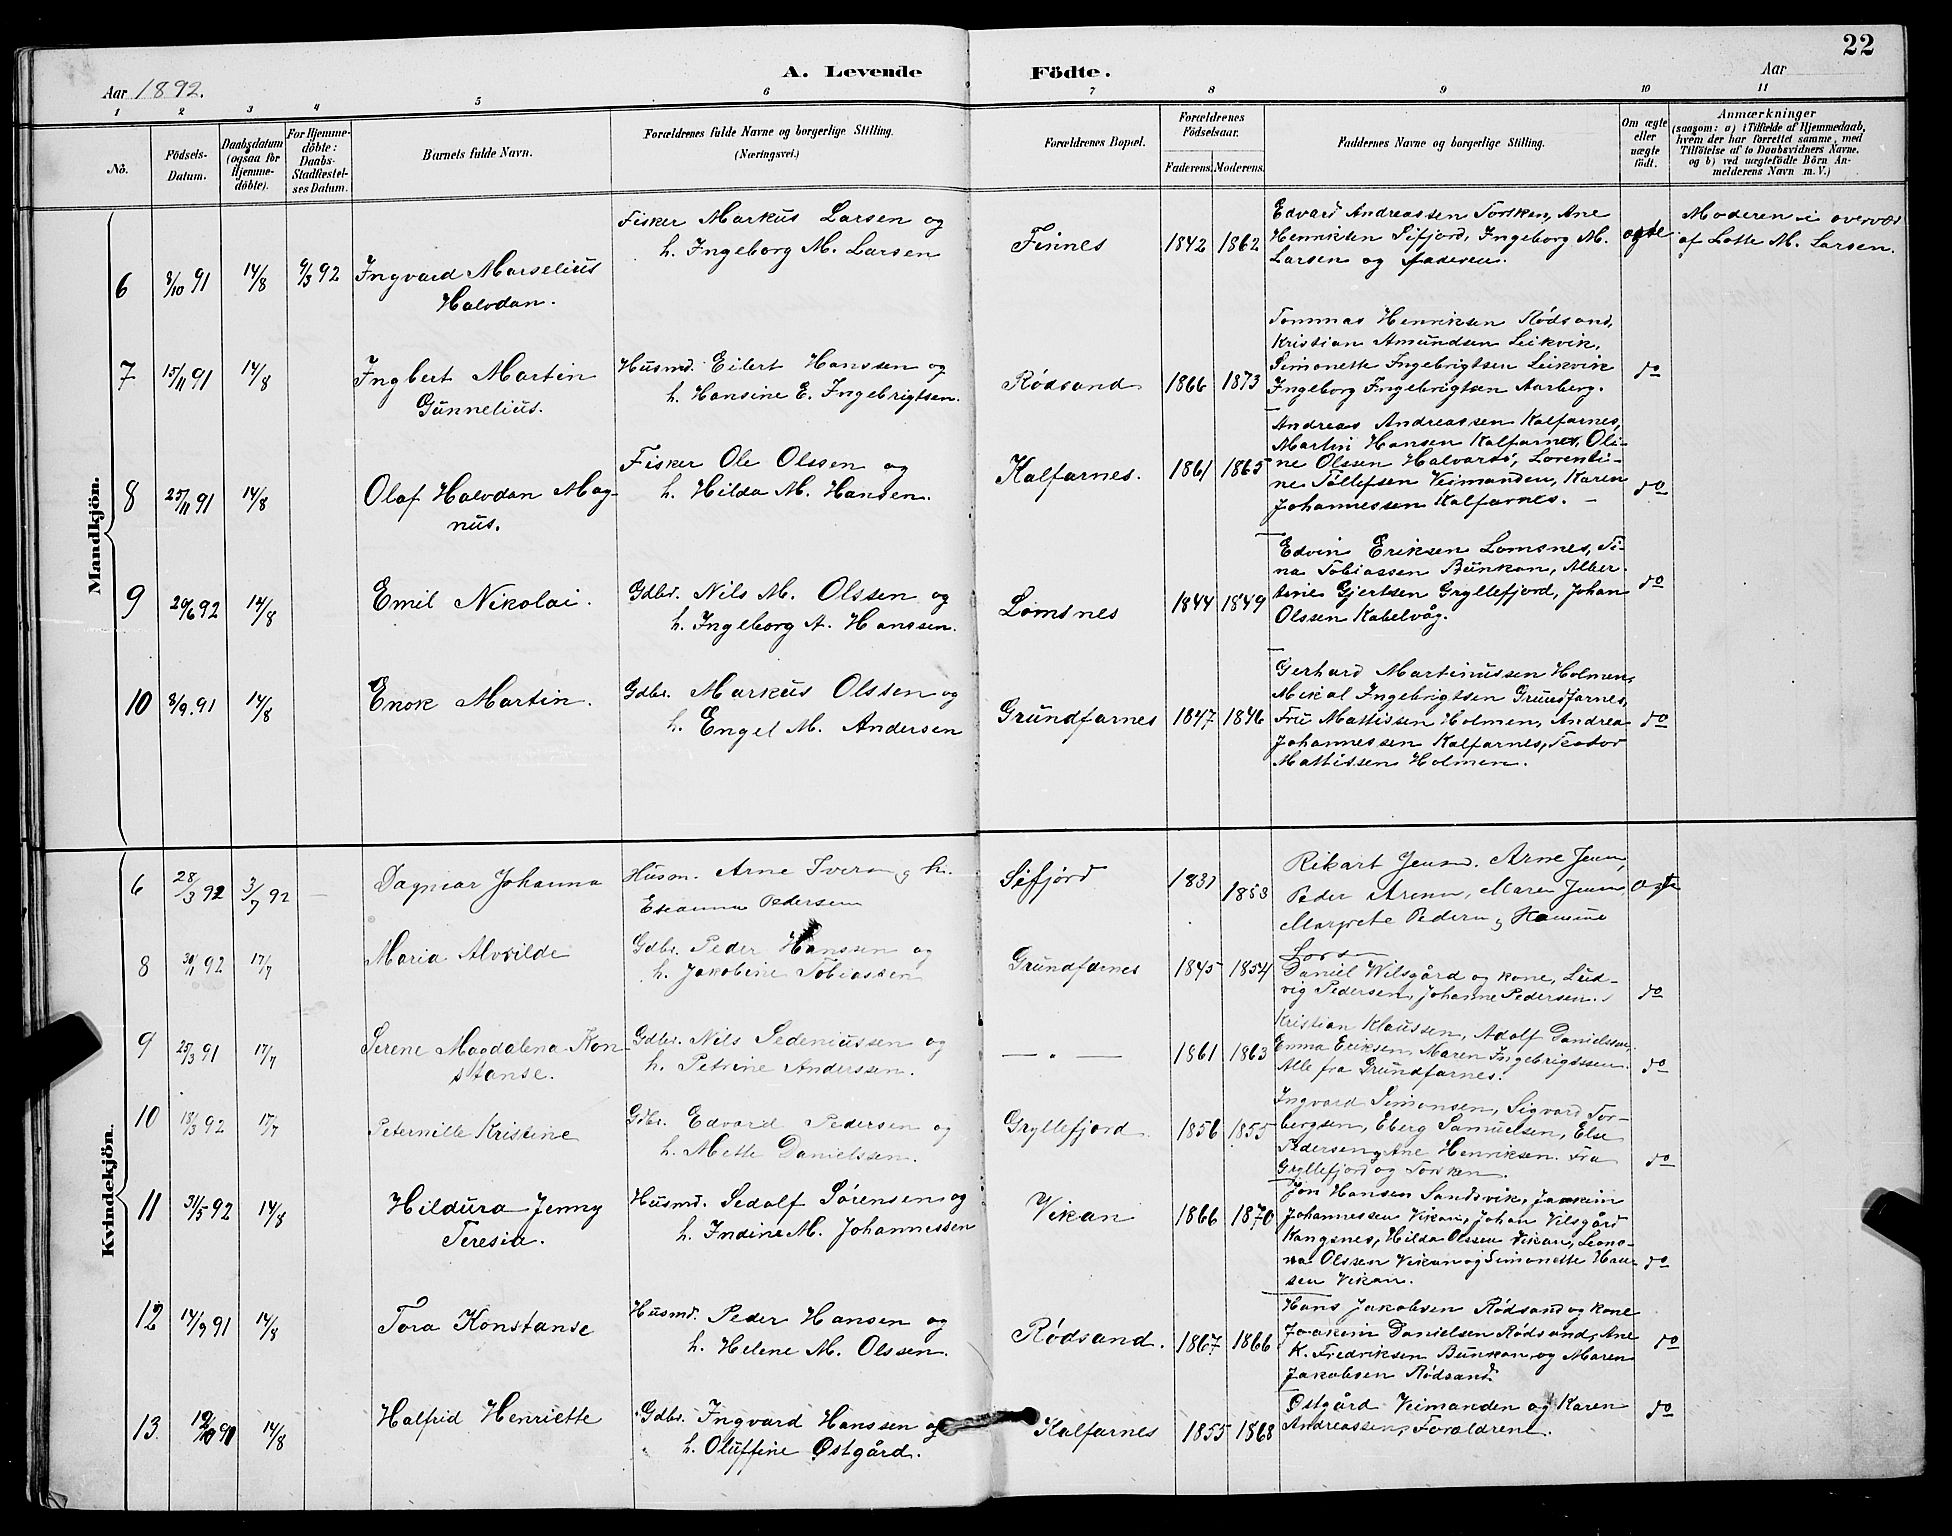 22
A. Levende Födte.
Aar 1892.
Aar
1 2 3 4 5 6 7 8 9 10 11
No.
Födsels-Datum.
Daabsdatum (ogsaa for Hjemmedöbte).
For Hjemmedöbte: Daabs-Stadfæstelses Datum.
Barnets fulde Navn.
Forældrenes fulde Navne og borgerlige Stilling.
(Næringsvei.)
Forældrenes Bopæl.
Forældrenes Födselsaar.
Faderens. Moderens.
Faddernes Navne og borgerlige Stilling.
Om ægte eller uægte födt.
Anmærkninger
(saasom: a) i Tilfælde af Hjemmedaab, hvem der har forrettet samme, med Tilföielse af to Daabsvidners Navne, og b) ved uægtefödte Börn Anmelderens Navn m. V.)
Mandkjön.
6 8/10 91 14/8 9/3 92 Ingvard Marselius
Halvdan.
Fisker Markus Larsen og
h. Ingeborg M. Larsen
Finnes 1842 1862
Edvard Andreassen Torsken, Ane
Henriksen Sifjord, Ingeborg M.
Larsen og faderen.
ægte
Moderen i overvær
af Lotte M. Larsen.
7 15/11 91 14/8 Ingbert Martin
Gunnelius.
Husmd. Eilert Hanssen og
h. Hansine E. Ingebrigtsen.
Rödsand 1866 1873
Tommas Henriksen Rödsand,
Kristian Amundsen Leikvik,
Simonette Ingebrigtsen Leikvik
Ingeborg Ingebrigtsen Aarberg.
do
8 25/11 91 14/8 Olaf Halvdan Mag-
nus.
Fisker Ole Olssen og
h. Hilda M. Hansen.
Kalfarnes. 1861 1865
Andreas Andreassen Kalfarnes,
Martin Hansen Kalfarnes, Oli-
ne Olssen Halvardsö, Lorenti-
ne Tollefsen Veimanden, Karen
Johannessen Kalfarnes. -
do
9 20/6 92 14/8 Emil Nikolai.
Gdbr. Nils M. Olssen og
h. Ingeborg A. Hanssen.
Lomsnes 1844 1849
Edvin Eriksen Lomsnes, Ti-
na Tobiassen Bunkan, Alber-
tine Gjertsen Gryllefjord, Johan
Olssen Kabelvåg.
do
10 8/9. 91 14/8 Enok Martin.
Gdbr. Markus Olssen og
h. Engel M. Andersen
Grundfarnes 1847 1846
Gerhard Martinussen Holmen,
Mikal Ingebrigtsen Grundfarnes,
Fru Mattissen Holmen, Andrea
Johannessen Kalfarnes, Teodor
Mattissen Holmen.
do
Kvindekjön.
6 28/3 92 3/7 92 — Dagmar Johanna
Husm. Arne Iversen og h.
Eleanna Pedersen
Sifjord 1837 1853
Rikart Jensen. Arne Jensen,
Peder Arnesen, Maren Jensen
Margrete Pedersen og Hansine
Larsen
ægte
8 30/1 92 17/7 Maria Alvilde
Gdbr. Peder Hanssen og
h. Jakobine Tobiassen
Grundfarnes 1845 1854
Daniel Wilsgård og kone, Lud-
vig Pedersen, Johanne Pedersen.
do
9 25/3 91 17/7 Serene Magdalena Kon-
stanse.
Gdbr. Nils Sedeniussen og
h. Petrine Anderssen.
— " — 1861 1863
Kristian Klaussen, Adolf Danielssen,
Emma Eriksen, Maren Ingebrigtssen.
Alle fra Grundfarnes.
do
10 18/3 92 17/7 Peternille Kristine
Gdbr. Edvard Pedersen og
h. Mette Danielssen.
Gryllefjord 1856 1855
Ingvard Simonsen, Sigvard Tor-
bergsen, Eberg Samuelsen, Else
Pedersen, Ane Henriksen. Fra
Gryllefjord og Torsken.
do
11 31/5 92 14/8 Hildura Jenny
Teresia.
Husmd. Sedolf Sørensen og
h. Indine M. Johannessen
Vikan 1866 1870
Jon Hansen Sandsvik, Joakim
Johannessen Vikan, Johan Vilsgård
Kongsnes, Hilda Olssen Vikan, Leono-
ra Olssen Vikan og Simonette Han-
sen Vikan.
do
12 14/9 91 14/8 Tora Konstanse
Husmd. Peder Hansen og
h. Helene M. Olssen.
Rödsand. 1867 1866
Hans Jakobsen Rödsand og kone
Joakim Danielsen Rödsand, Ane
K. Fredriksen Bunkan og Maren
Jakobsen Rødsand.
do
13. 14/8 Halfrid Henriette
Gdbr. Ingvard Hanssen og
h. Oluffine Østgård.
Kalfarnes 1855 1868
Østgård Veimanden og Karen
Andreassen, Forældrene.
do